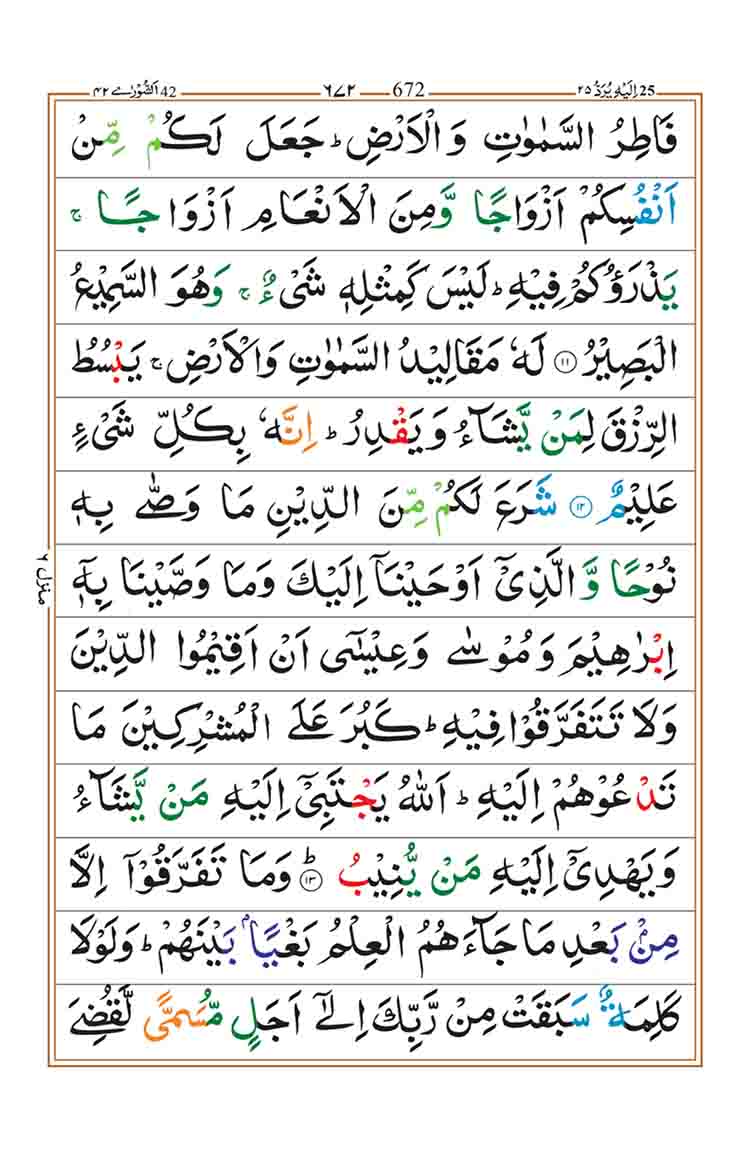 25 اِلَيْهِ يُرَدُّ ٢٥ 672 ٦٧٢ 42 اَلشُّوْرٰے ٤٢
فَاطِرُ السَّمٰوٰتِ وَالْاَرْضِ ؕ جَعَلَ لَكُمْ مِّنْ
اَنْفُسِكُمْ اَزْوَاجًا وَّمِنَ الْاَنْعَامِ اَزْوَاجًا ۚ
يَذْرَؤُكُمْ فِيْهِ ؕ لَيْسَ كَمِثْلِهٖ شَيْءٌ ۚ وَهُوَ السَّمِيْعُ
الْبَصِيْرُ ۝١١ لَهٗ مَقَالِيْدُ السَّمٰوٰتِ وَالْاَرْضِ ۚ يَبْسُطُ
الرِّزْقَ لِمَنْ يَّشَآءُ وَيَقْدِرُ ؕ اِنَّهٗ بِكُلِّ شَيْءٍ
عَلِيْمٌ ۝١٢ شَرَعَ لَكُمْ مِّنَ الدِّيْنِ مَا وَصّٰى بِهٖ
نُوْحًا وَّالَّذِيْٓ اَوْحَيْنَآ اِلَيْكَ وَمَا وَصَّيْنَا بِهٖٓ
اِبْرٰهِيْمَ وَمُوْسٰى وَعِيْسٰٓى اَنْ اَقِيْمُوا الدِّيْنَ
وَلَا تَتَفَرَّقُوْا فِيْهِ ؕ كَبُرَ عَلَى الْمُشْرِكِيْنَ مَا
تَدْعُوْهُمْ اِلَيْهِ ؕ اَللّٰهُ يَجْتَبِيْٓ اِلَيْهِ مَنْ يَّشَآءُ
وَيَهْدِيْٓ اِلَيْهِ مَنْ يُّنِيْبُ ؕ۝١٣ وَمَا تَفَرَّقُوْٓا اِلَّا
مِنْۢ بَعْدِ مَا جَآءَهُمُ الْعِلْمُ بَغْيًاۢ بَيْنَهُمْ ؕ وَلَوْلَا
كَلِمَةٌ سَبَقَتْ مِنْ رَّبِّكَ اِلٰٓى اَجَلٍ مُّسَمًّى لَّقُضِيَ
منزل ٦